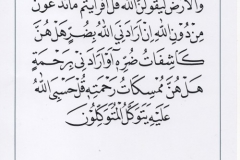 والأرض ليقولن الله قل أفرأيتم ما تدعون
من دون الله إن أرادني الله بضر هل هن
كاشفات ضره أو أرادني برحمة
هل هن ممسكات رحمته قل حسبي الله
عليه يتوكل المتوكلون